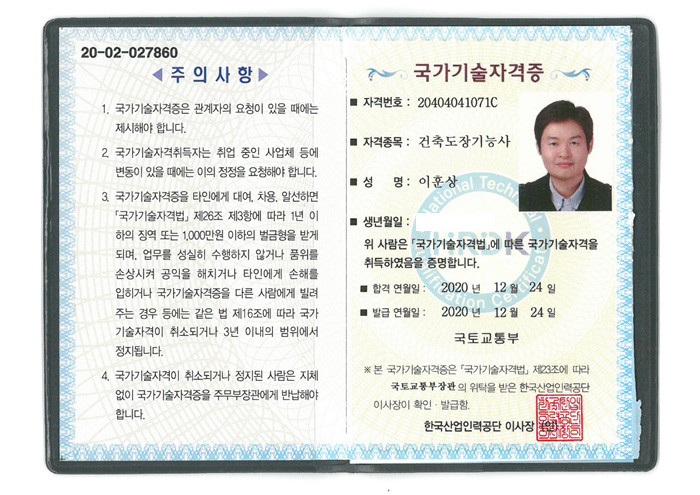 20-02-027860
◀ 주의사항 ▶
1. 국가기술자격증은 관계자의 요청이 있을 때에는
제시해야 합니다.
2. 국가기술자격취득자는 취업 중인 사업체 등에
변동이 있을 때에는 이의 정정을 요청해야 합니다.
3. 국가기술자격증을 타인에게 대여, 차용, 알선하면
「국가기술자격법」 제26조 제3항에 따라 1년 이
하의 징역 또는 1,000만원 이하의 벌금형을 받게
되며, 업무를 성실히 수행하지 않거나 품위를
손상시켜 공익을 해치거나 타인에게 손해를
입히거나 국가기술자격증을 다른 사람에게 빌려
주는 경우 등에는 같은 법 제16조에 따라 국가
기술자격이 취소되거나 3년 이내의 범위에서
정지됩니다.
4. 국가기술자격이 취소되거나 정지된 사람은 지체
없이 국가기술자격증을 주무부장관에게 반납해야
합니다.
국가기술자격증
■ 자격번호 : 20404041071C
■ 자격종목 : 건축도장기능사
■ 성 명 : 이훈상
■ 생년월일 :
위 사람은 「국가기술자격법」에 따른 국가기술자격을
취득하였음을 증명합니다.
■ 합격 연월일 : 2020 년 12 월 24 일
■ 발급 연월일 : 2020 년 12 월 24 일
국토교통부
※ 본 국가기술자격증은 「국가기술자격법」 제23조에 따라
국토교통부장관의 위탁을 받은 한국산업인력공단
이사장이 확인 · 발급함.
한국산업인력공단 이사장 (인)
HRDK